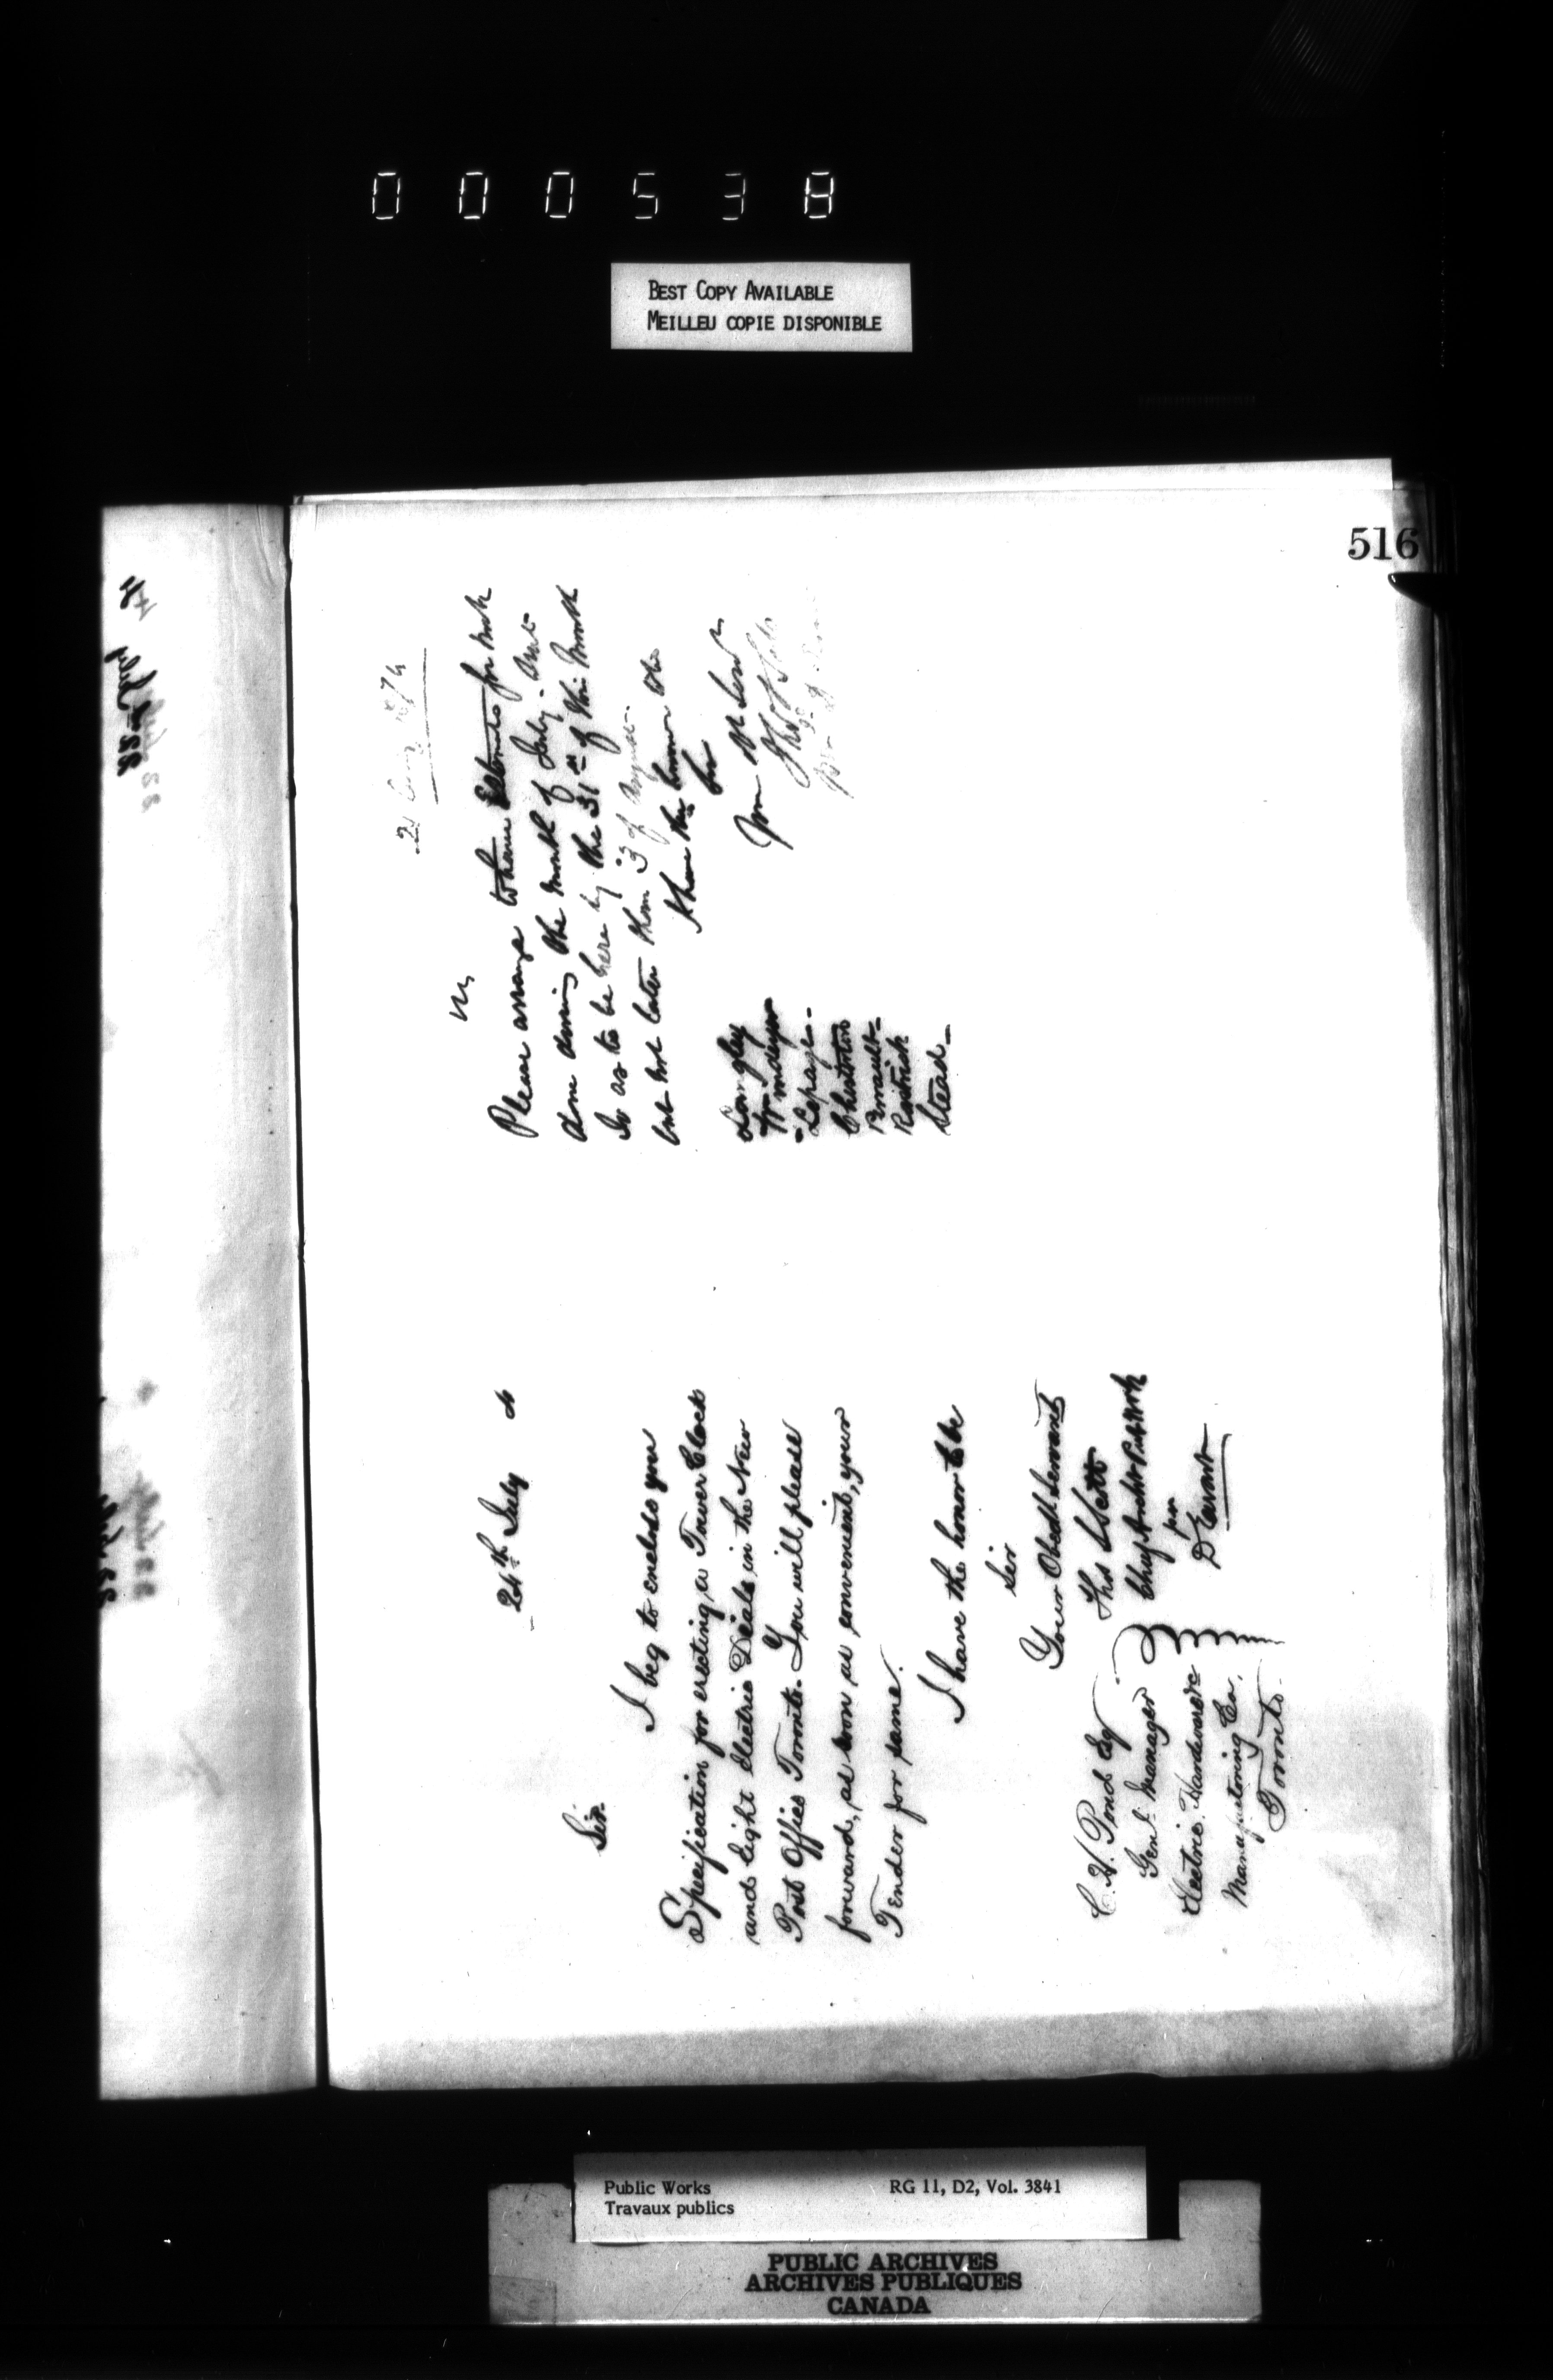 000538
BEST COPY AVAILABLE
MEILLEU COPIE DISPONIBLE
516
24th July
Sir.
I beg to enclose you
Specification for erecting a Tower Clock
and Eight Electric Deals in the New
Post Office Toronto. You will please
forward, as soon as convenient, your
Tender for same.
I have the honor to be
Sir
Your Obedt Servant
Thos S Scott
Chief Archt Pub Works
per
D Ewart
C. H. Pond Esq
Genl. Manager
Electric Hardware
Manufactoring Co.
Toronto.
Sir
Please arrange to have Estimates for work
done during the month of July sent
so as to be here by the 31st of this month
but not later than 3 of August.
I have the honour to be
Sir
Your Ob Serv
Thos S Scott
Langley
Lepage
Chesterton
Perrault
Rastrick
Stead
22nd July
Public Works
Travaux publics
RG 11, D2, Vol. 3841
PUBLIC ARCHIVES
ARCHIVES PUBLIQUES
CANADA